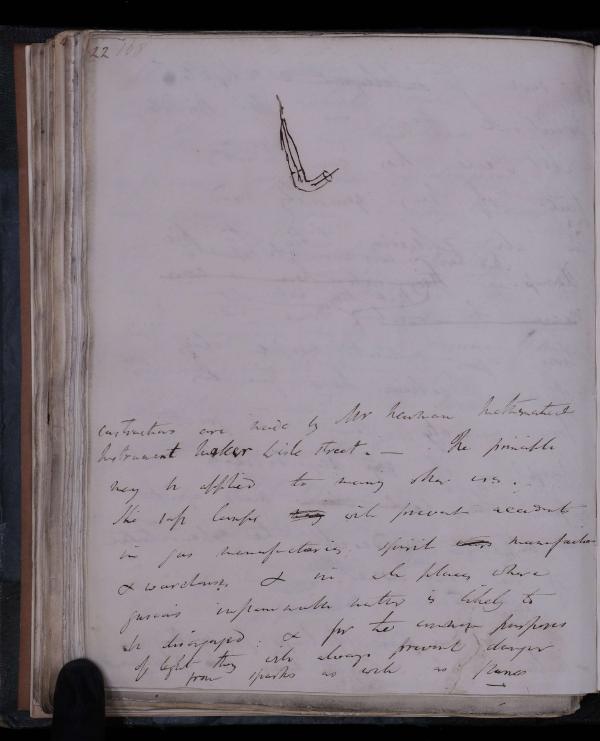 22 168
are made by Mr Newman Mathematical
Instrument Maker Lisle Street. — The principle
may be applied to many other uses.
The safe lamps will prevent accidents
in gas manufactories, spirit manufactories
& warehouses & in all places where
gaseous inflammable matter is likely to
be disengaged: & for the common purposes
of light they will always prevent danger
from sparks as well as flames